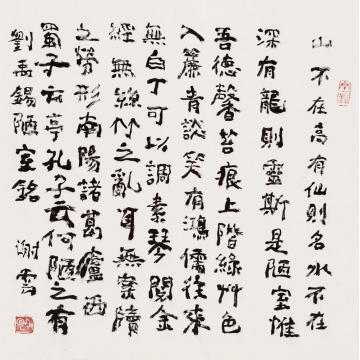 山不在高有仙則名水不在
深有龍則靈斯是陋室惟
吾德馨苔痕上階綠艸色
入簾青談笑有鴻儒往來
無白丁可以調素琴閱金
經無絲竹之亂耳無案牘
之勞形南陽諸葛廬西
蜀子云亭孔子云何陋之有
劉禹錫陋室銘 謝雲